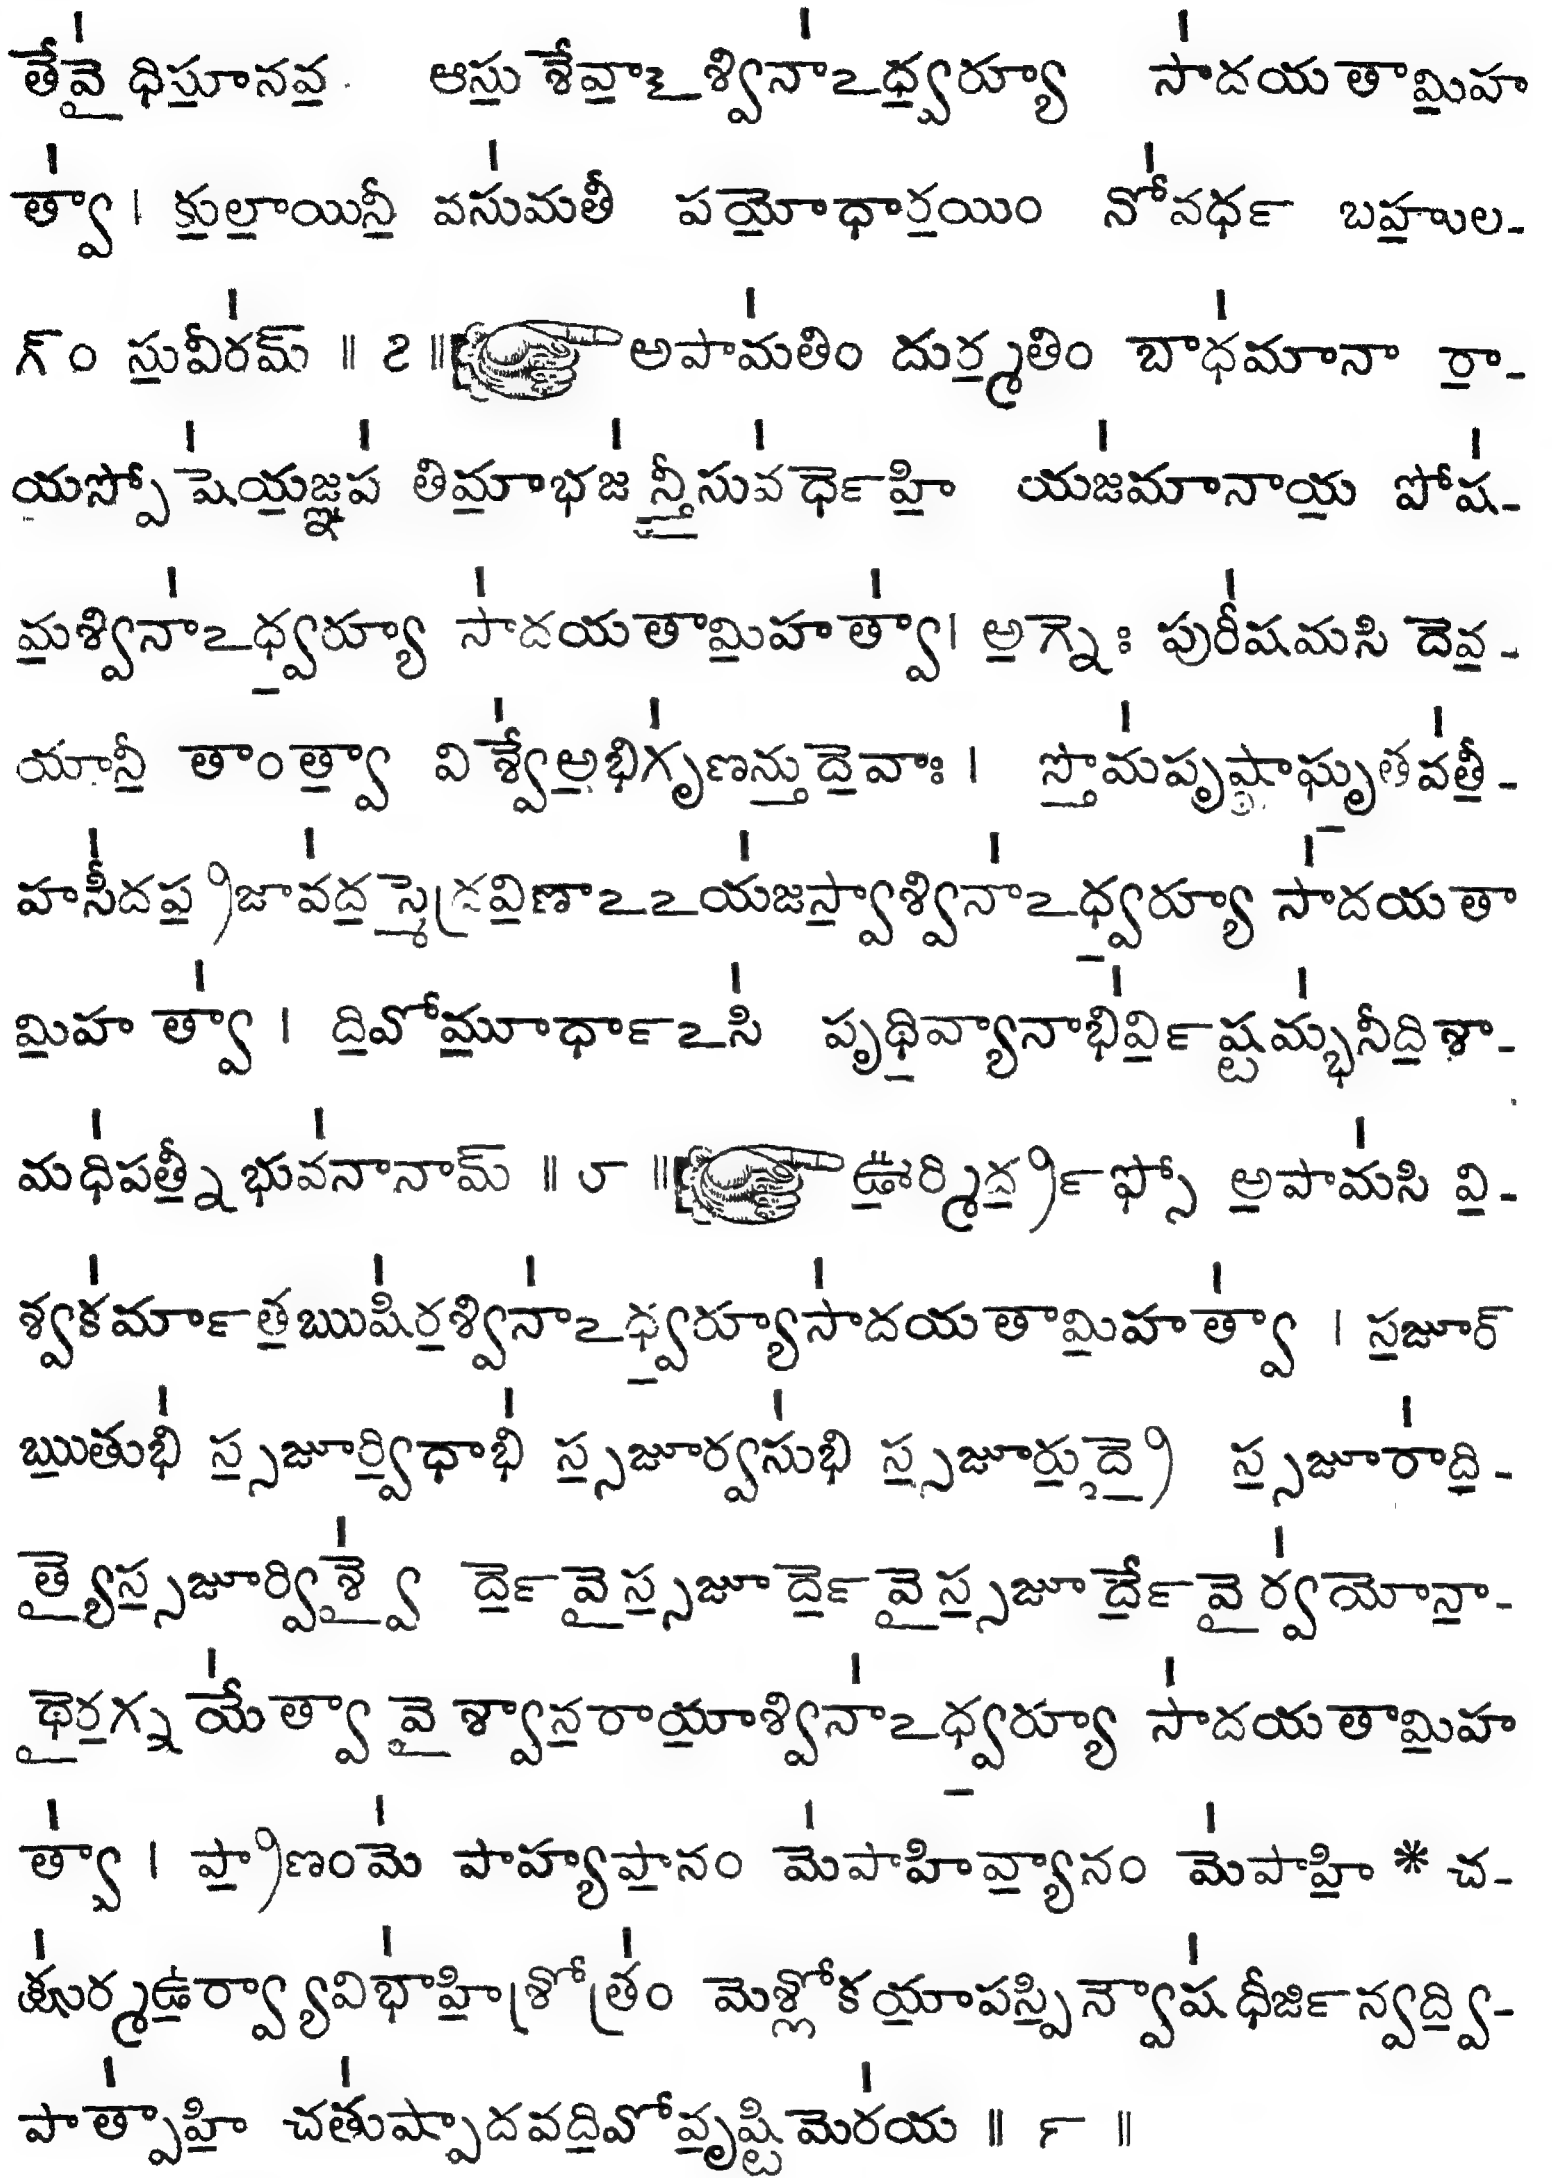 తే॑వై॒ ధి॒స్తూనవ॒త ఆస్తు॒ శేవా॒ఽశ్వినా॑ఽధ్వ॒ర్యూ సా॑దయతామి॒హ
త్వా॑ । కు॒లా॒యినీ॒ వసు॑మతీ పయో॒ధార॒యిం నో॑వర్ధ బహు॒ల-
గ్ం సు॒వీర॑మ్ ॥ ౭ ॥ అపామ॑తిం దుర్మ॒తిం బాధ॑మానా రా॒-
యస్పో॑షెయ॒జ్ఞప॑తిమా॒భజ॑న్తీ॒సువ॑ర్ధెహి॒ యజ॑మానాయ॒ పోష॑-
మ॒శ్వినా॑ఽధ్వ॒ర్యూ సా॑దయతామి॒హత్వా॑। అ॒గ్నెః పురీ॑షమసి దెవ॒-
యానీ॒ తాంత్వా॒ విశ్వే॑అ॒భిగృ॑ణన్తు॒దె॒వాః । స్తొ॒మ॑పృష్ఠా॒ఘృ॒తవ॑తీ॒-
హసీ॑దప్ర॒జావ॑ద॒స్మె॒ద్రవి॒ణాఽఽయ॑జస్వా॒శ్వినా॑ఽధ్వ॒ర్యూ సా॑దయతా
మి॒హ త్వా॑ । ది॒వోమూ॒ర్ధాఽసి॑ పృథి॒వ్యానాభి॑ర్వి॒ష్టమ్భ॑నీది॒శా-
మధి॑పత్నీ॒ భువ॑నానామ్ ॥ ౮ ॥ ఊ॒ర్మి॒ర్ద్ర॒ప్సో అ॒పామ॑సి వి॒-
శ్వక॑ర్మాత॒ఋషి॑ర॒శ్వినా॑ఽధ్వ॒ర్యూసా॑దయతామి॒హత్వా॑ । స॒జూర్
ఋ॒తుభి॑ స్స॒జూర్వి॒ధాభి॑ స్స॒జూర్వసు॑భి స్స॒జూర్రు॒ద్రై॒ స్స॒జూరా॑ది॒-
త్యై॒స్స॒జూర్విశ్వై॒॑ ర్దె॒వై॒స్స॒జూ ర్దె॒వై॒స్స॒జూ ర్దే॒॑వై॒ ర్వయోనా॒-
థై॒ర॒గ్నయే॑ త్వా వై॒శ్వాన॒రాయా॒శ్వినా॑ఽధ్వ॒ర్యూ సా॑దయతామి॒హ
త్వా॑ । ప్రా॒ణంమె॑ పాహ్యపా॒నం మె॑పాహివ్యా॒నం మె॑పాహి॒ * చ-
క్షు॑ర్మఉ॒ర్వ్యావిభా॑హి॒శ్రోత్రం॑ మెశ్లోకయా॒పస్పి॒న్వౌష॑ధీర్జిన్వద్వి॒-
పాత్పా॑హి॒ చతు॑ష్పాదవది॒వోవృ॒ష్టిమెర॑య ॥ ౯ ॥